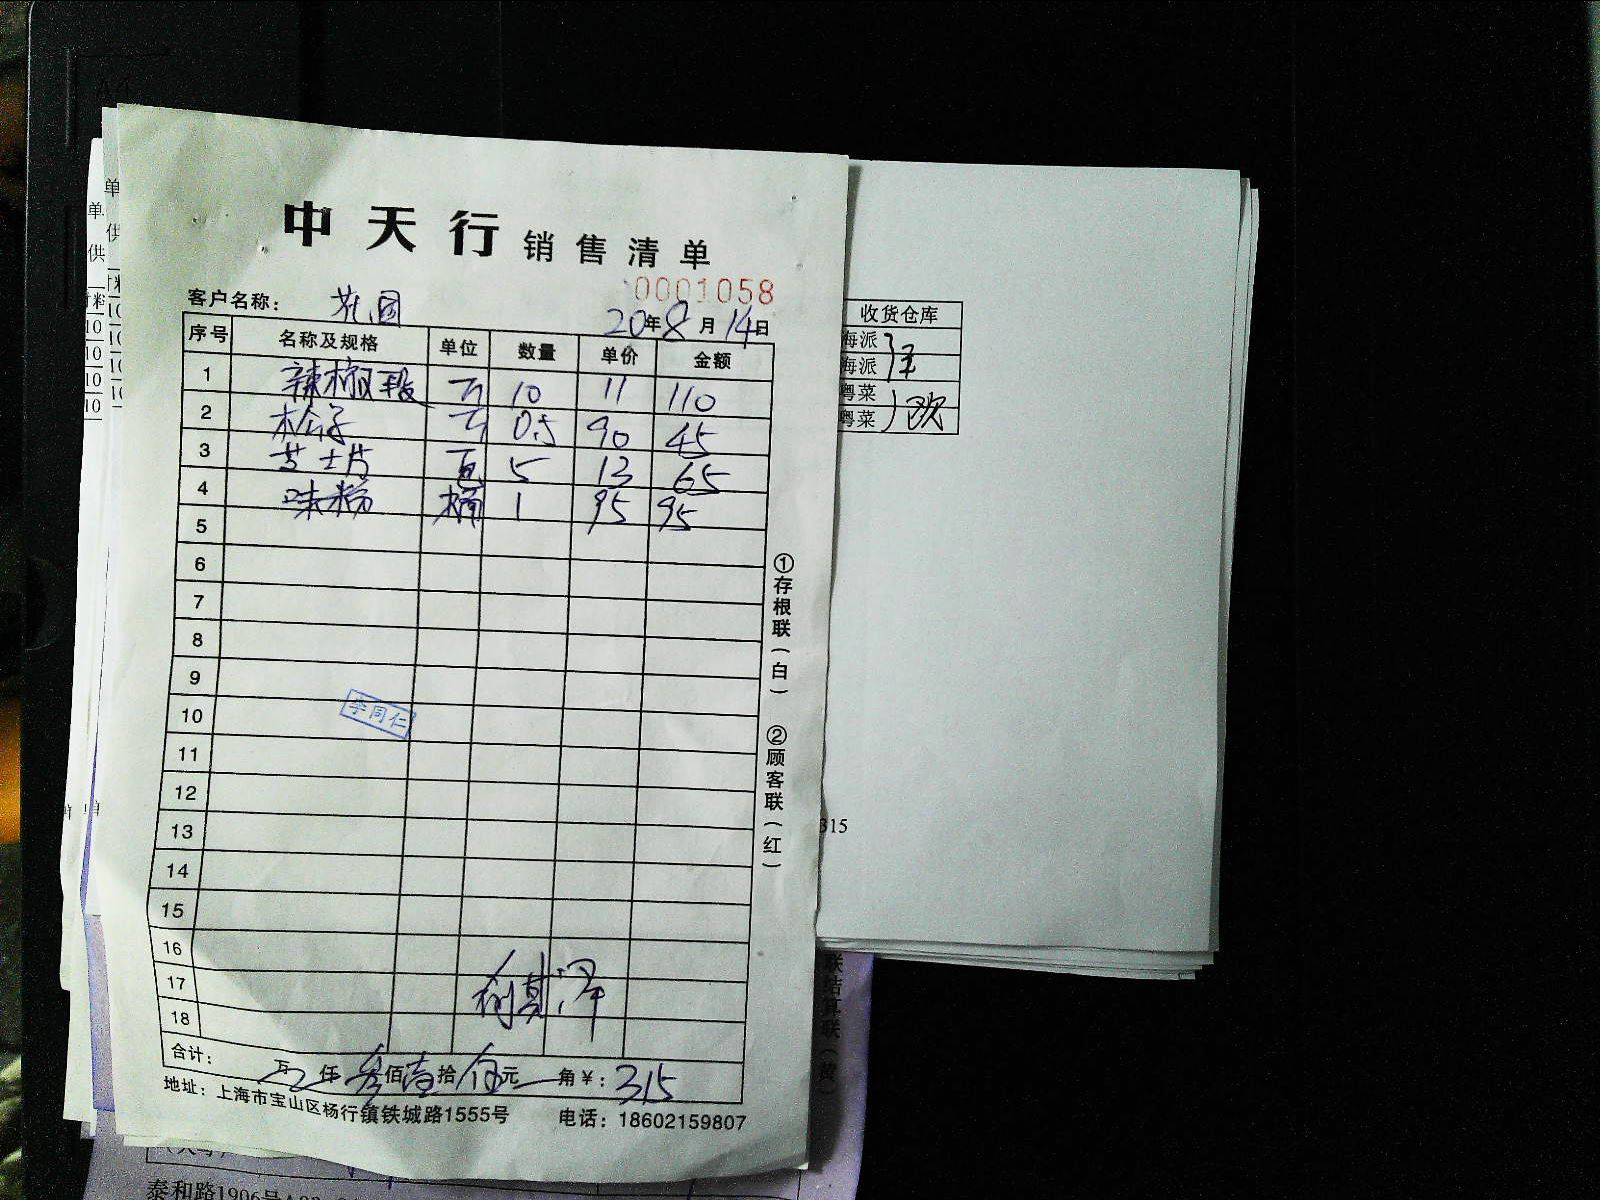 中天行 销售清单
0001058
客户名称： 花园
20年8月14日
序号 名称及规格 单位 数量 单价 金额
1 辣椒段 斤 10 11 110
2 松子 斤 0.5 90 45
3 芝士片 包 5 13 65
4 味粉 桶 1 95 95
5
6
7
8
9
10
李同仁
11
12
13
14
15
16
17
18
合计： 万 仟叁佰壹拾伍元 角￥：315
地址：上海市宝山区杨行镇铁城路1555号 电话：18602159807
①存根联（白） ②顾客联（红）
收货仓库
海派
海派
粤菜
粤菜
315
单
供
单
供
料
料
10
10
10
10
10
10
10
联结算联（黄）
泰和路1906号